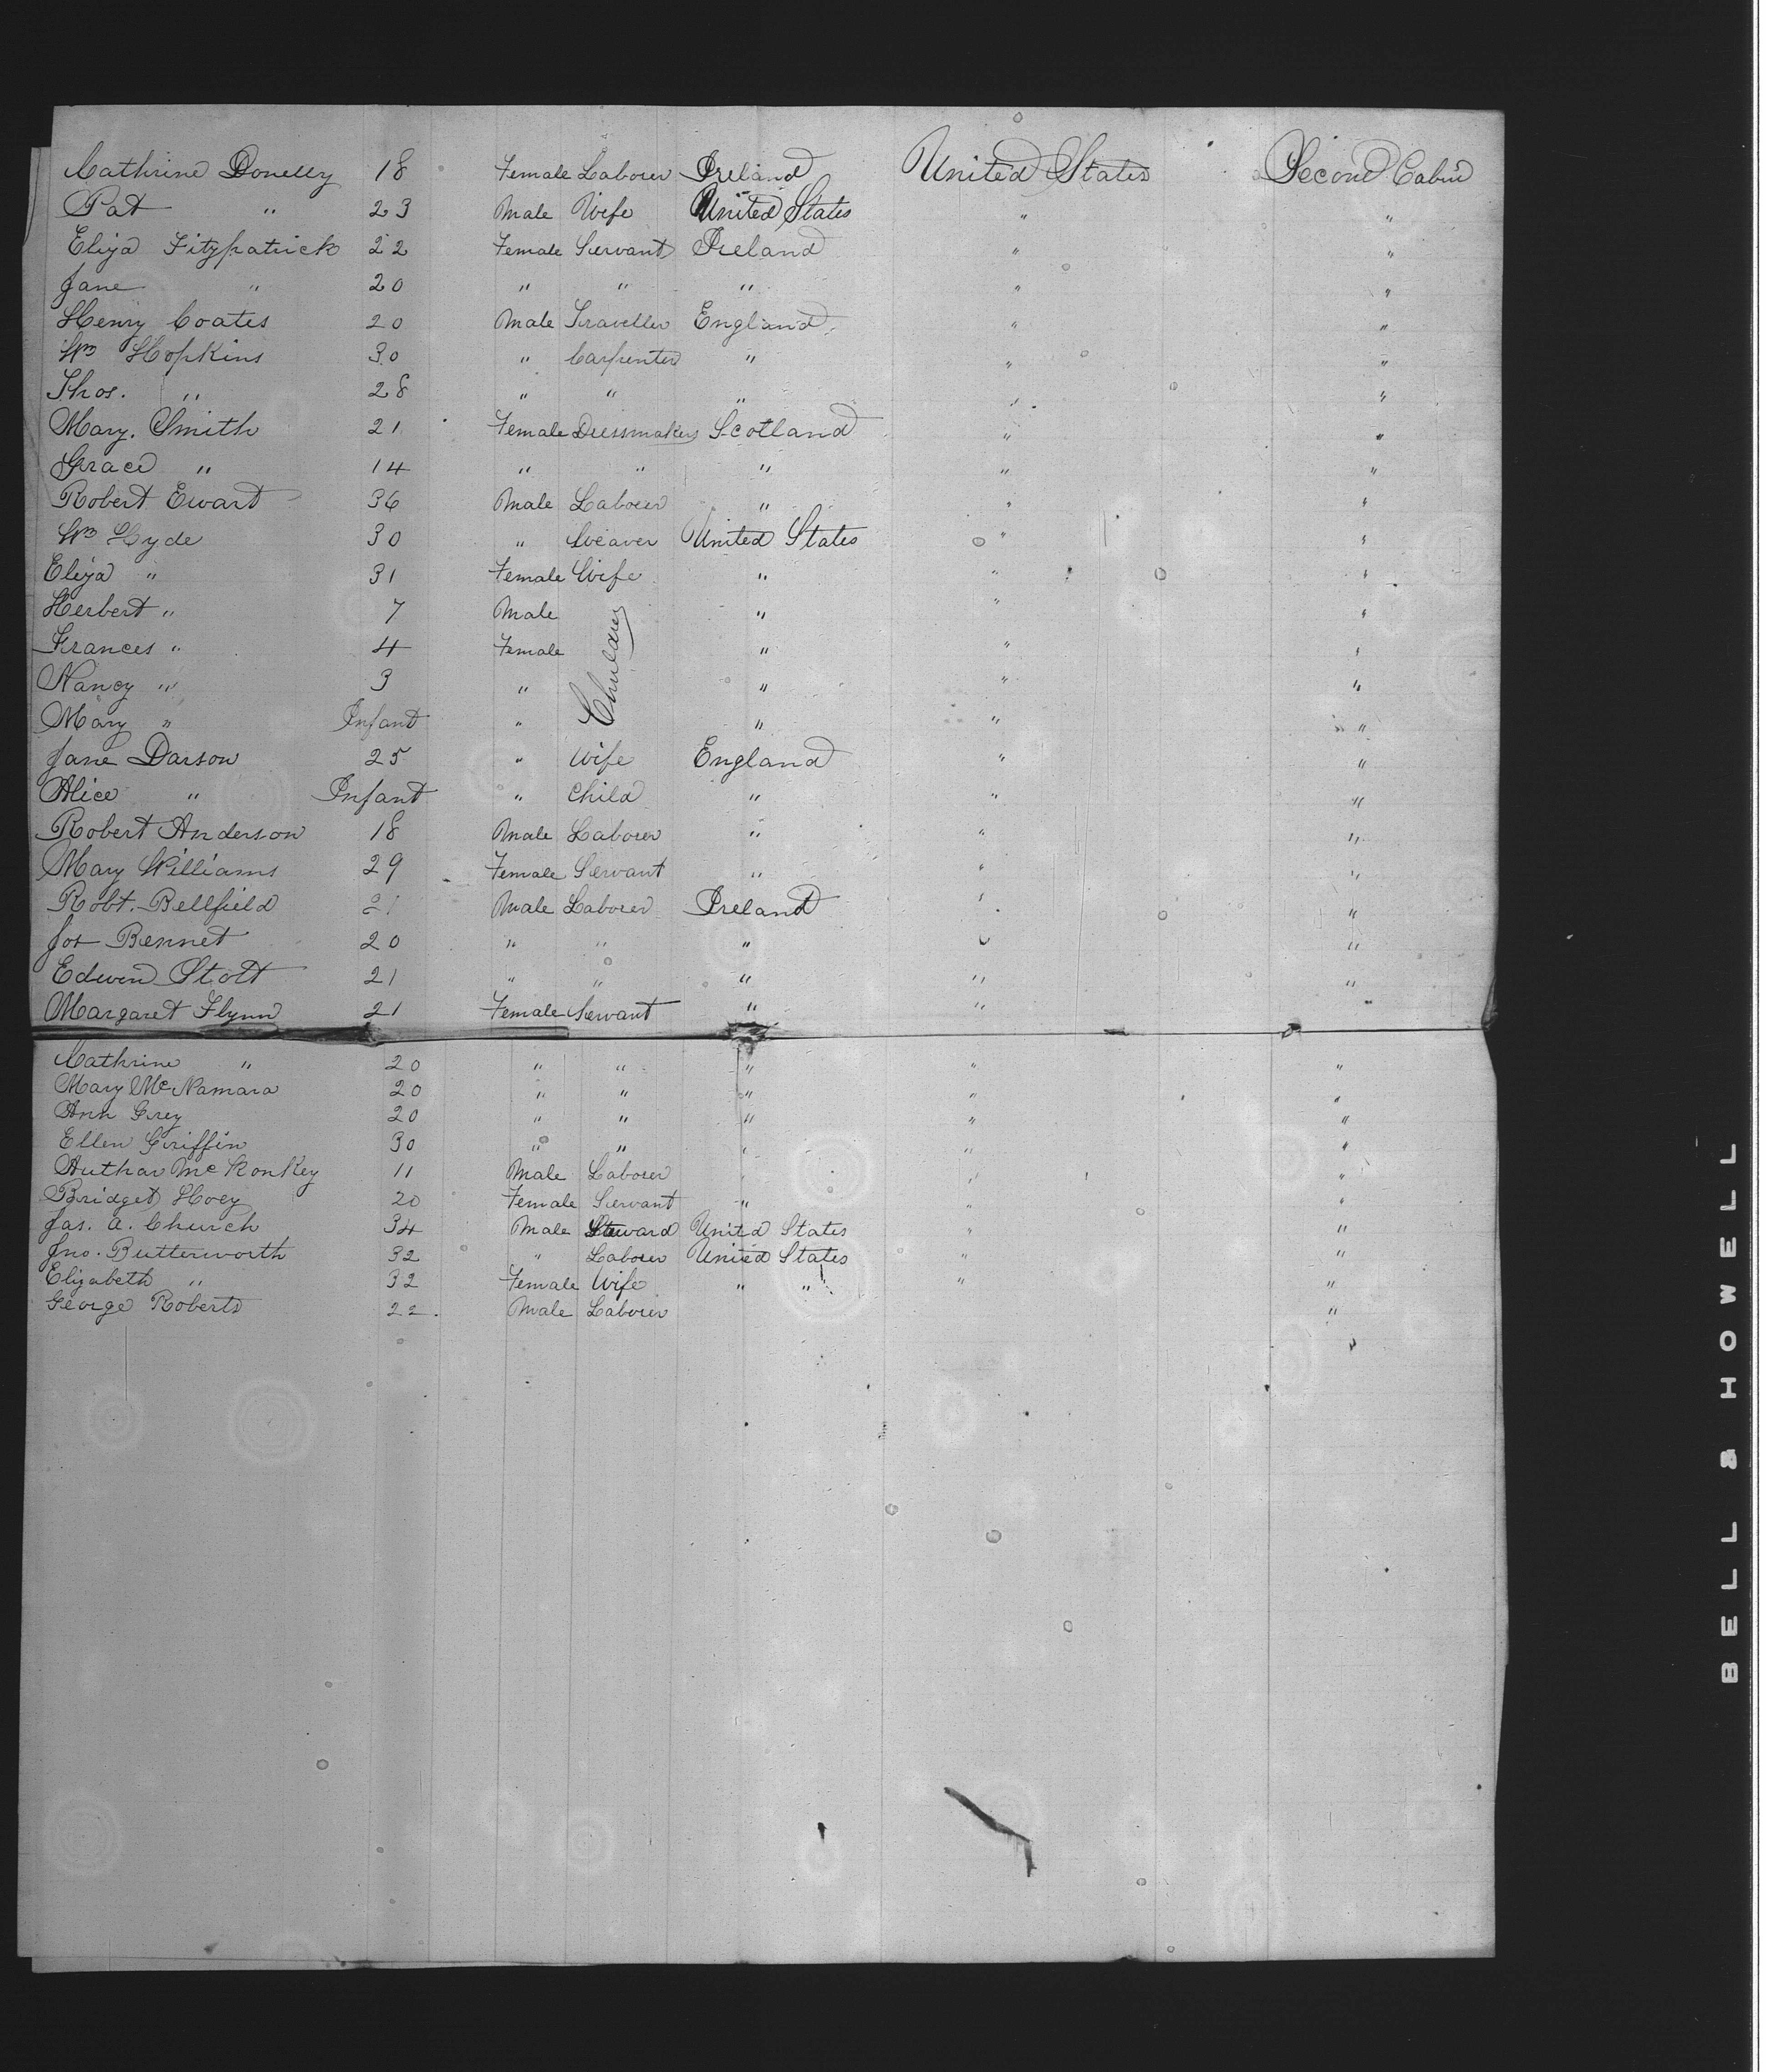 Cathrine Donelly 18 Female Laborer Ireland United States Second Cabin
Pat " 23 Male Wife United States " "
Eliza Fitzpatrick 22 Female Servant Ireland " "
Jane " 20 " " " " "
Henry Coates 20 Male Traveller England " "
Wm Hopkins 30 " Carpenter " " "
Thos. " 28 " " " " "
Mary. Smith 21 Female Dressmaker Scotland " "
Grace " 14 " " " " "
Robert Ewart 36 Male Laborer " " "
Wm Hyde 30 " Weaver United States " "
Eliza " 31 Female Wife " " "
Herbert " 7 Male " " "
Frances " 4 Female " " "
Nancy " 3 " Children " " "
Mary " Infant " " " "
Jane Darson 25 " Wife England " "
Alice " Infant " Child " " "
Robert Anderson 18 Male Laborer " " "
Mary Williams 29 Female Servant " " "
Robt. Bellfield 21 Male Laborer Ireland " "
Jos Bennet 20 " " " " "
Edwin Stott 21 " " " " "
Margaret Flynn 21 Female Servant " " "
Cathrine " 20 " " " " "
Mary McNamara 20 " " " " "
Ann Grey 20 " " " " "
Ellen Griffin 30 " " " " "
Authar McKonkey 11 Male Laborer " " "
Bridget Hoey 20 Female Servant " " "
Jas. A. Church 34 Male Steward United States " "
Jno. Butterworth 32 " Laborer United States " "
Elizabeth " 32 Female Wife " " " "
George Roberts 22. Male Laborer "
BELL & HOWELL